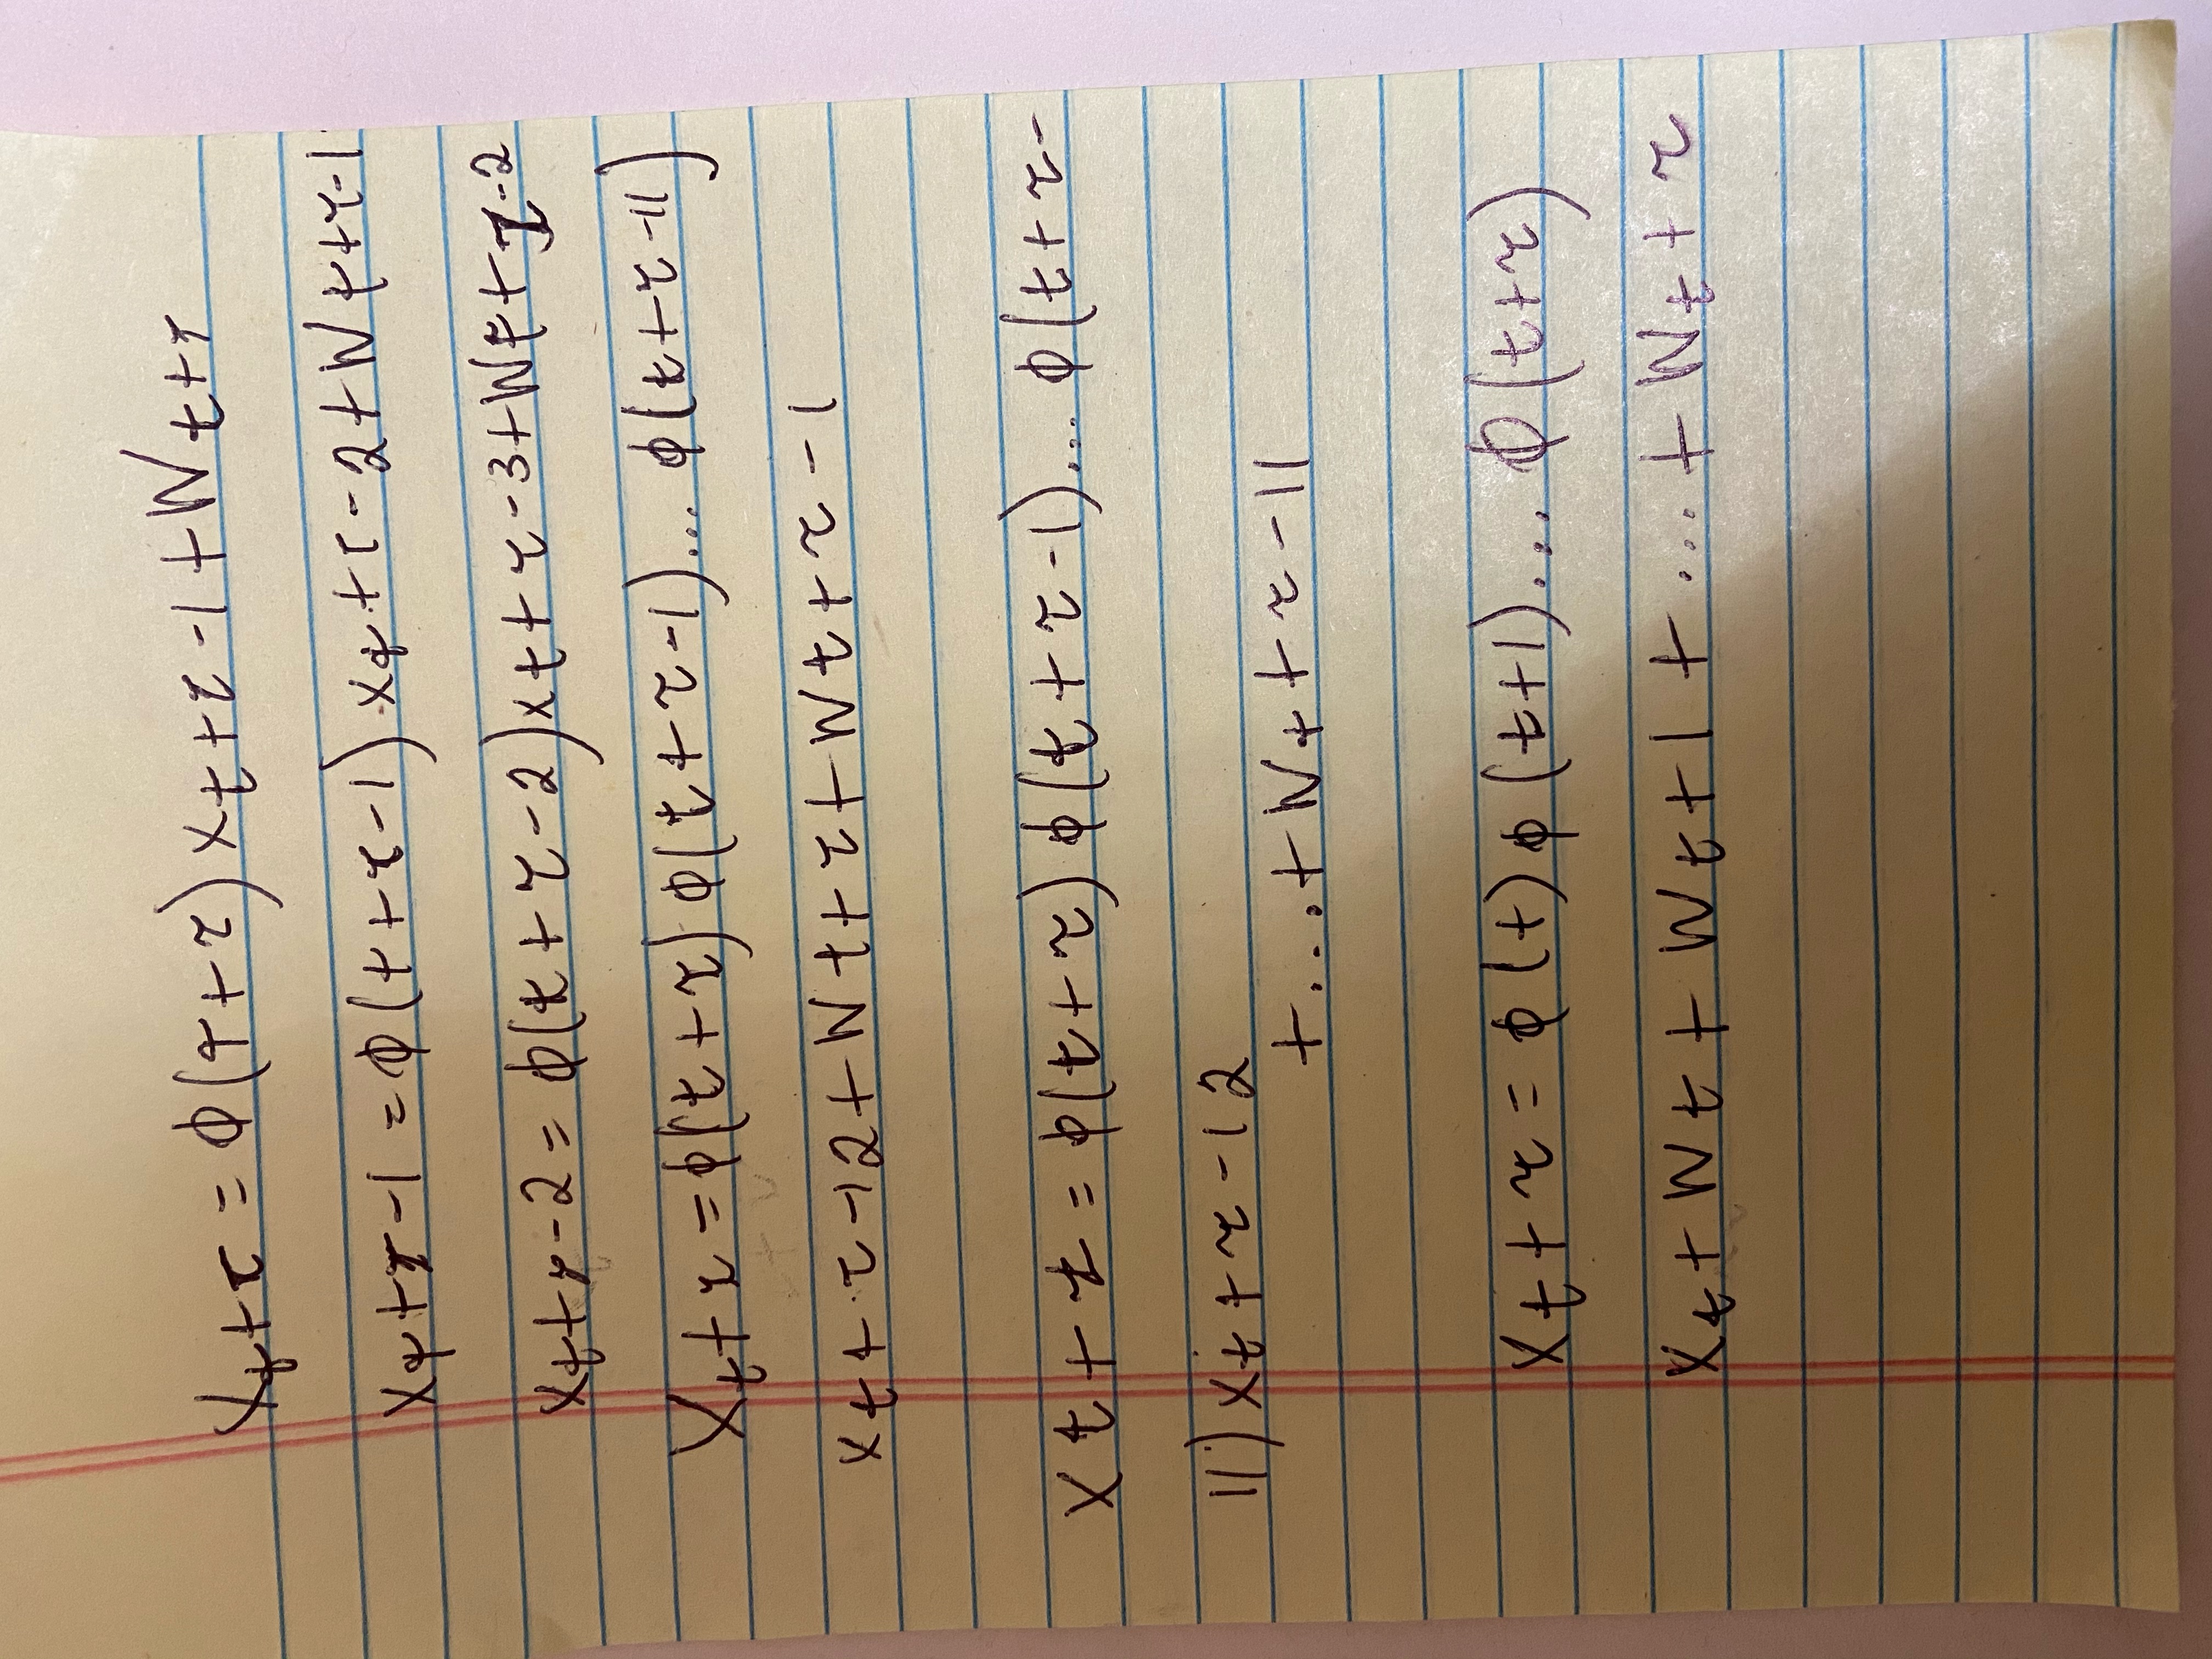 X_t+τ = φ(τ+τ) x_t+τ-1+W_t+τ
x_t+τ-1 = φ(t+τ-1) x_t+τ-2+W_t+τ-1
x_t+τ-2 = φ(t+τ-2) x_t+τ-3+W_t+τ-2
X_t+τ = φ(t+τ) φ(t+τ-1)... φ(t+τ-11)
x_t+τ-12+W_t+τ+W_t+τ-1
x_t+τ = φ(t+τ) φ(t+τ-1)... φ(t+τ-
11) x_t+τ-12
+...+W_t+τ-11
x_t+τ = φ(t) φ(t+1)... φ(t+τ)
x_t+W_t+W_t+1+...+W_t+τ